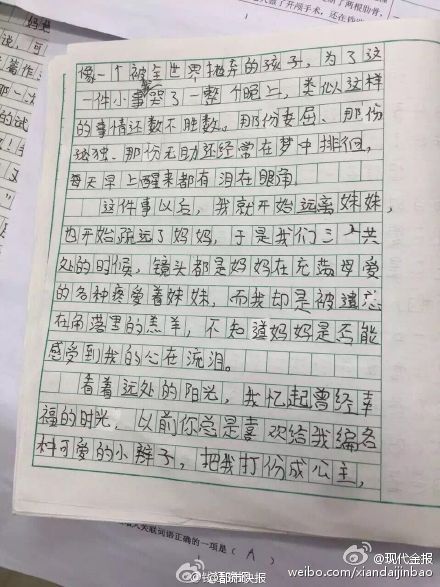 像一个被全世界抛弃的孩子，为了这
一件小事哭了一整个晚上，类似这样
的事情还数不胜数。那份委屈、那份
孤独、那份无助还经常在梦中排徊，
每天早上醒来都有泪在眼角。
这件事以后，我就开始远离妹妹，
也开始疏远了妈妈，于是我们三人共
处的时候，镜头都是妈妈在充满母爱
的各种疼爱着妹妹，而我却是被遗忘
在角落里的羔羊，不知道妈妈是否能
感受到我的心在流泪。
看着远处的阳光，我忆起曾经幸
福的时光，以前你总是喜欢给我编各
种可爱的小辫子，把我打份成公主，
关联词语正确的一项是（ A ）
@都市快报
@现代金报
weibo.com/xiandaijinbao